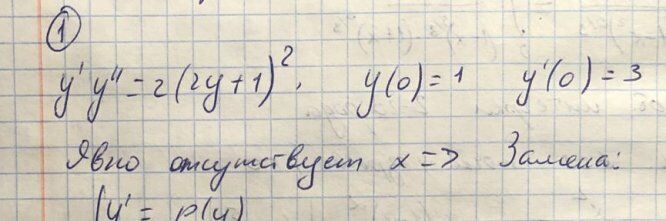 1
y' y'' = 2(2y+1)², y(0)=1 y'(0)=3
Явно отсутствует x => Замена:
{y' = p(y)